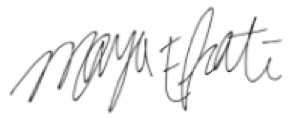 Maya Efrati